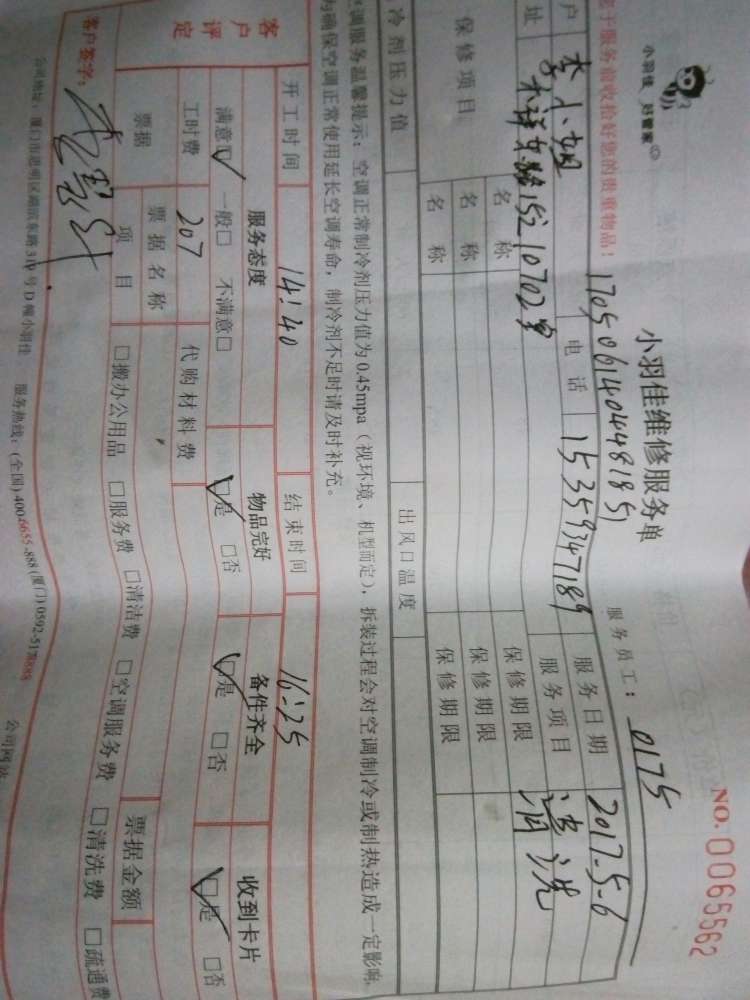 小羽佳 好管家
小羽佳维修服务单
NO. 0065562
170506140448185
服务员工: 0175
于服务前收拾好您的贵重物品!
户 李小姐 电话 15359347189 服务日期 2017-5-6
址 禾祥东路15210702室 服务项目 清洗
保修项目
名称 保修期限
名称 保修期限
名称 保修期限
冷剂压力值 出风口温度
空调服务温馨提示:空调正常制冷剂压力值为0.45mpa(视环境、机型而定),拆装过程会对空调制冷或制热造成一定影响,
为确保空调正常使用延长空调寿命,制冷剂不足时请及时补充。
开工时间 14:40 结束时间 16:25
客户评定
服务态度 物品完好 备件齐全 收到卡片
满意□ 一般□ 不满意□ □是 □否 □是 □否 □是 □否
工时费 207 代购材料费
票据 票据名称 票据金额
项目 □搬办公用品 □服务费 □清洁费 □空调服务费 □清洗费 □疏通费
客户签字:
公司地址:厦门市思明区湖滨东路319号D幢小羽佳 服务热线:(全国)4006655-888(厦门)0592-5178888 公司网站